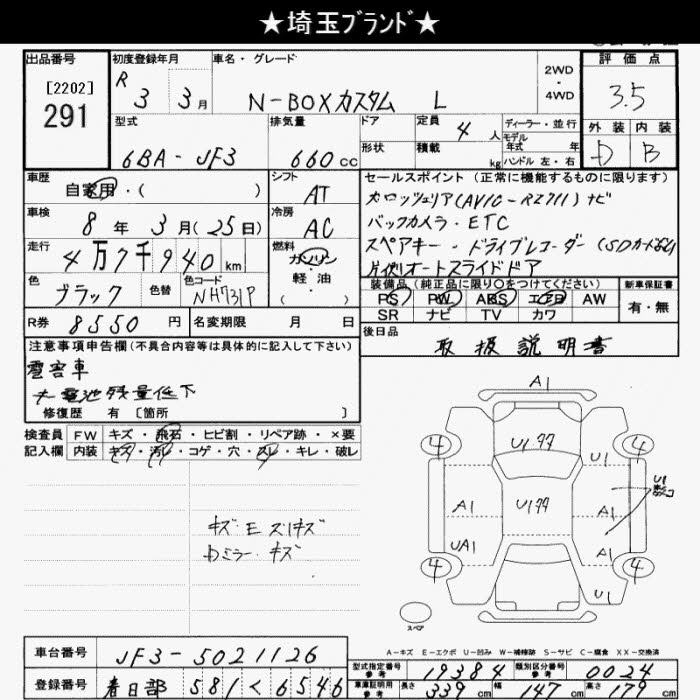 ★埼玉ﾌﾞﾗﾝﾄﾞ★
出品番号 初度登録年月 車名・グレード 2WD・4WD 評価点
[2202] 291 R 3 3月 N-BOXカスタム L 3.5
型式 排気量 ドア 定員 4人 ディーラー・並行 外装 内装
モデル年式 年
6BA-JF3 660cc 形状 積載 kg ハンドル 左・右 D B
車歴 自家用・( ) シフト AT セールスポイント (正常に機能するものに限ります)
車検 8年 3月(25日) 冷房 AC カロッツェリア(AVIC-RZ711)ナビ
バックカメラ・ETC
走行 4万7千940km 燃料 ガソリン 軽・油 ( ) スペアキー・ドライブレコーダー(SDカードなし)
片側オートスライドドア
色 ブラック 色替 色コード NH731P 装備品(純正品に限り○をつけてください) 新車保証書
PS PW ABS エアB AW 有・無
R券 8550円 名変期限 月 日 SR ナビ TV カワ
注意事項申告欄(不具合内容等は具体的に記入して下さい) 後日品 取扱説明書
雹害車
キー電池残量低下
修復歴 有 [箇所 ]
検査員 FW キズ・飛石・ヒビ割・リペア跡・×要
記入欄 内装 キズ・汚レ・コゲ・穴・スレ・キレ・破レ
A1
4 U1 4
U1
A1 U1 A1
UA1 A1
4 4
U1
キズ・E スリキズ
Dミラー・キズ
スペア
A-キズ E-エクボ U-凹み W-補修跡 S-サビ C-腐食 XX-交換済
車台番号 JF3-5021126 型式指定番号 参考 19384 類別区分番号 参考 0024
登録番号 春日部 581 く 6546 車庫証明用 参考 長さ 339cm 幅 147cm 高さ 179cm